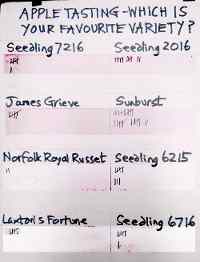 APPLE TASTING - WHICH IS
YOUR FAVOURITE VARIETY?
Seedling 7216 Seedling 2016
James Grieve Sunburst
Norfolk Royal Russet Seedling 6215
Laxton's Fortune Seedling 6716